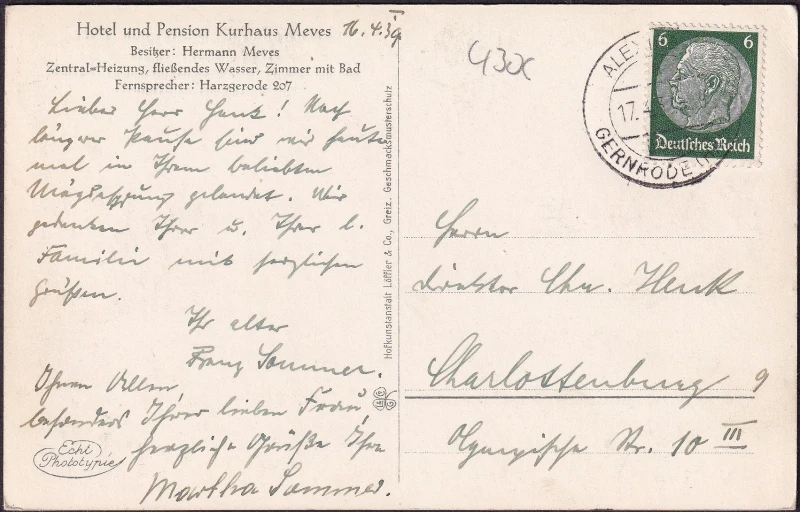 Hotel und Pension Kurhaus Meves 16.4.39
Besitzer: Hermann Meves
Zentral=Heizung, fließendes Wasser, Zimmer mit Bad
Fernsprecher: Harzgerode 207
Lieber Herr Henk! Nach
längerer Pause sind wir heute
mal in Ihrem beliebten
Mägdesprung gelandet. Wir
gedenken Ihrer u. Ihrer l.
Familie mit herzlichen
Grüßen.
Ihr alter
Franz Sommer.
Ihnen Allen,
besonders Ihrer lieben Frau,
herzliche Grüße Ihre
Martha Sommer.
Echt
Phototypie
Hofkunstanstalt Löffler & Co., Greiz. Geschmacksmusterschutz
430x
6 6
Deutsches Reich
ALEX
17.4
GERNRODE
Herrn
Direktor Chr. Henk
Charlottenburg 9
Olympische Str. 10 III